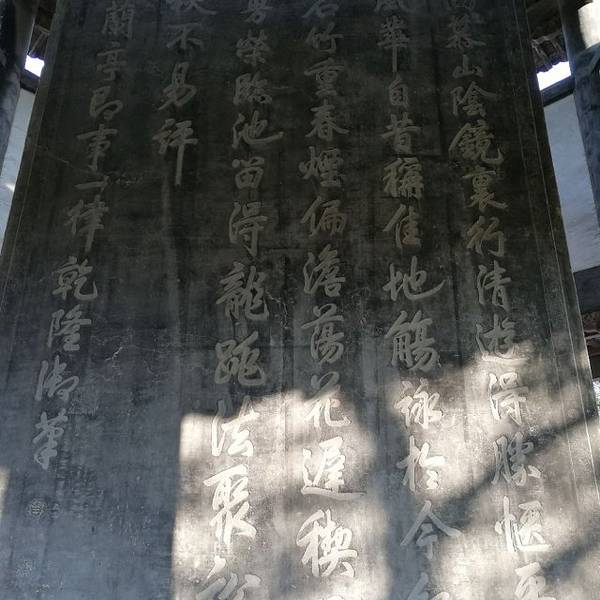 慕山陰鏡裏行清遊得勝愜平
風華自昔稱佳地觴詠於今
名竹重春煙偏澹蕩花遲禊
敷榮臨池留得龍跳法聚訟
秋不易評
蘭亭即事一律乾隆御筆